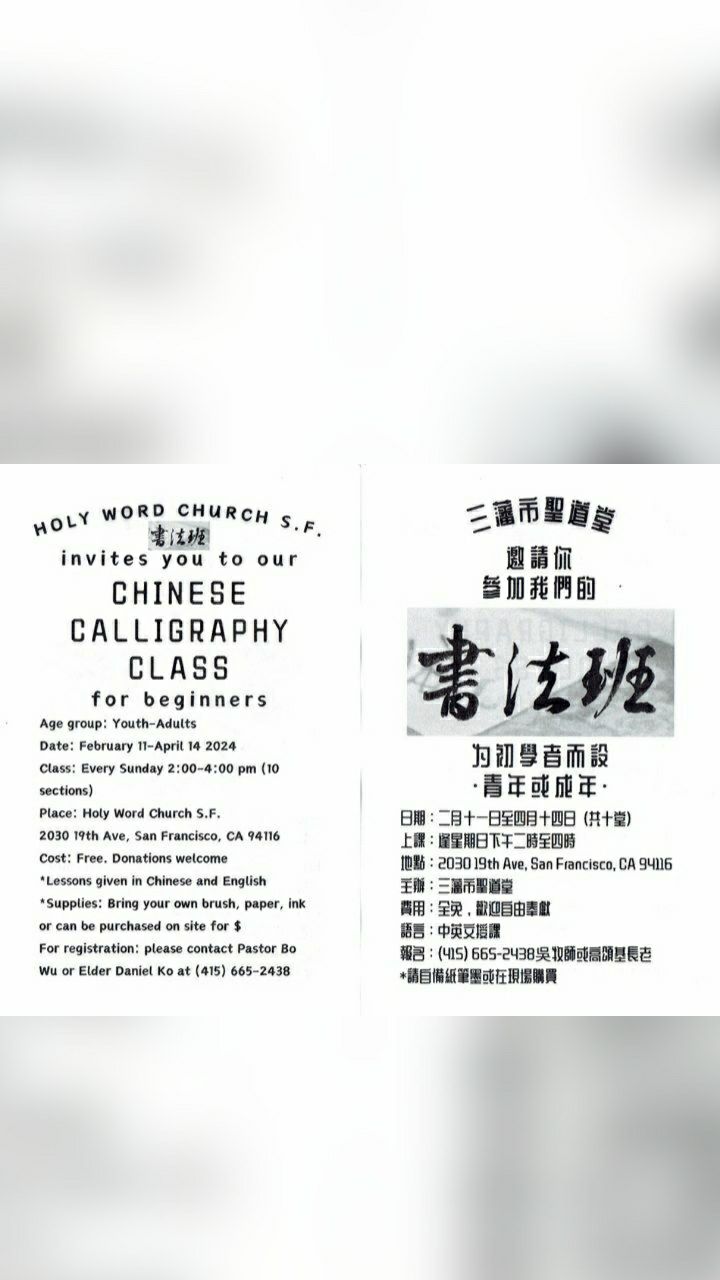 HOLY WORD CHURCH S.F.
書法班
invites you to our
CHINESE
CALLIGRAPHY
CLASS
for beginners
Age group: Youth-Adults
Date: February 11-April 14 2024
Class: Every Sunday 2:00-4:00 pm (10
sections)
Place: Holy Word Church S.F.
2030 19th Ave, San Francisco, CA 94116
Cost: Free. Donations welcome
*Lessons given in Chinese and English
*Supplies: Bring your own brush, paper, ink
or can be purchased on site for $
For registration: please contact Pastor Bo
Wu or Elder Daniel Ko at (415) 665-2438
三藩市聖道堂
邀請你
參加我們的
書法班
为初學者而設
·青年或成年·
日期：二月十一日至四月十四日（共十堂）
上課：逢星期日下午二時至四時
地點：2030 19th Ave, San Francisco, CA 94116
主辦：三藩市聖道堂
費用：全免，歡迎自由奉獻
語言：中英文授課
報名：(415) 665-2438吳牧師或高頌基長老
*請自備紙筆墨或在現場購買